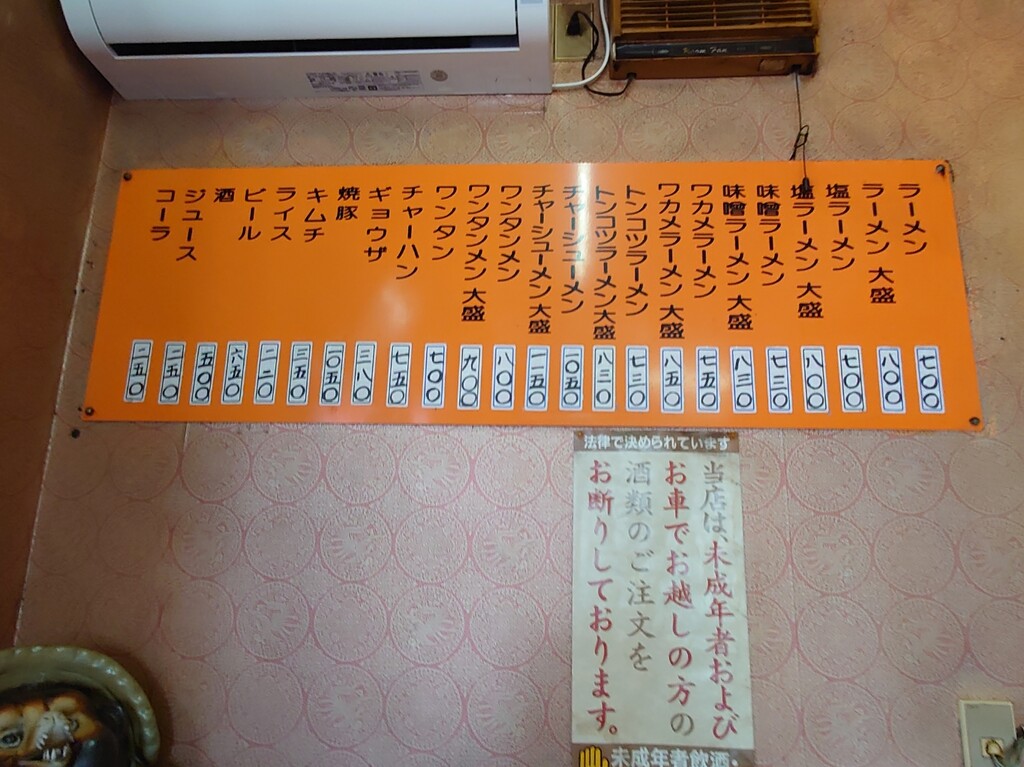 ラーメン 七〇〇
ラーメン 大盛 八〇〇
塩ラーメン 七〇〇
塩ラーメン 大盛 八〇〇
味噌ラーメン 七三〇
味噌ラーメン 大盛 八三〇
ワカメラーメン 七五〇
ワカメラーメン 大盛 八五〇
トンコツラーメン 七三〇
トンコツラーメン 大盛 八三〇
チャーシューメン 一〇五〇
チャーシューメン 大盛 一一五〇
ワンタンメン 八〇〇
ワンタンメン 大盛 九〇〇
ワンタン 七〇〇
チャーハン 七五〇
ギョウザ 三八〇
焼豚 一〇五〇
キムチ 三五〇
ライス 二二〇
ビール 六五〇
酒 五〇〇
ジュース 二五〇
コーラ 二五〇
法律で決められています
当店は、未成年者および
お車でお越しの方の
酒類のご注文を
お断りしております。
未成年者飲酒・